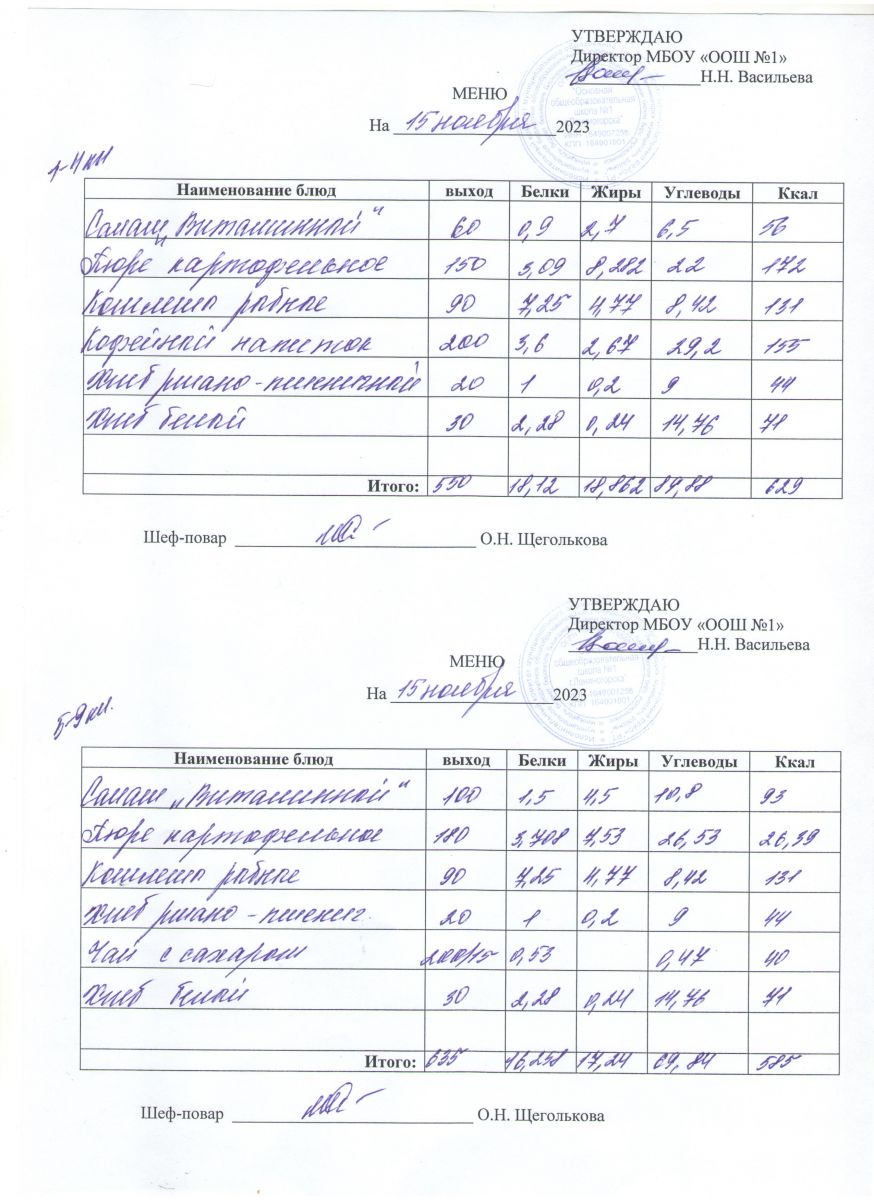 УТВЕРЖДАЮ
Директор МБОУ «ООШ №1»
Н.Н. Васильева
МЕНЮ
На 15 ноября 2023
"Основная
общеобразовательная
школа №1
1-4 кл
Наименование блюд выход Белки Жиры Углеводы Ккал
Салат „Витаминный" 60 0,9 2,7 6,5 56
Пюре картофельное 150 3,09 8,282 22 172
Котлета рыбная 90 7,25 4,77 8,42 131
Кофейный напиток 200 3,6 2,67 29,2 155
Хлеб ржано-пшеничный 20 1 0,2 9 44
Хлеб белый 30 2,28 0,24 14,76 71
Итого: 550 18,12 18,862 89,88 629
Шеф-повар О.Н. Щеголькова
УТВЕРЖДАЮ
Директор МБОУ «ООШ №1»
Н.Н. Васильева
МЕНЮ
На 15 ноября 2023
общеобразовательная
школа №1
г.Лениногорска"
5-9 кл.
Наименование блюд выход Белки Жиры Углеводы Ккал
Салат „Витаминный" 100 1,5 4,5 10,8 93
Пюре картофельное 180 3,708 7,53 26,53 26,39
Котлета рыбная 90 7,25 4,77 8,42 131
Хлеб ржано-пшенич. 20 1 0,2 9 44
Чай с сахаром 200/15 0,53 0,47 40
Хлеб белый 30 2,28 0,24 14,76 71
Итого: 635 16,258 17,24 69,84 585
Шеф-повар О.Н. Щеголькова